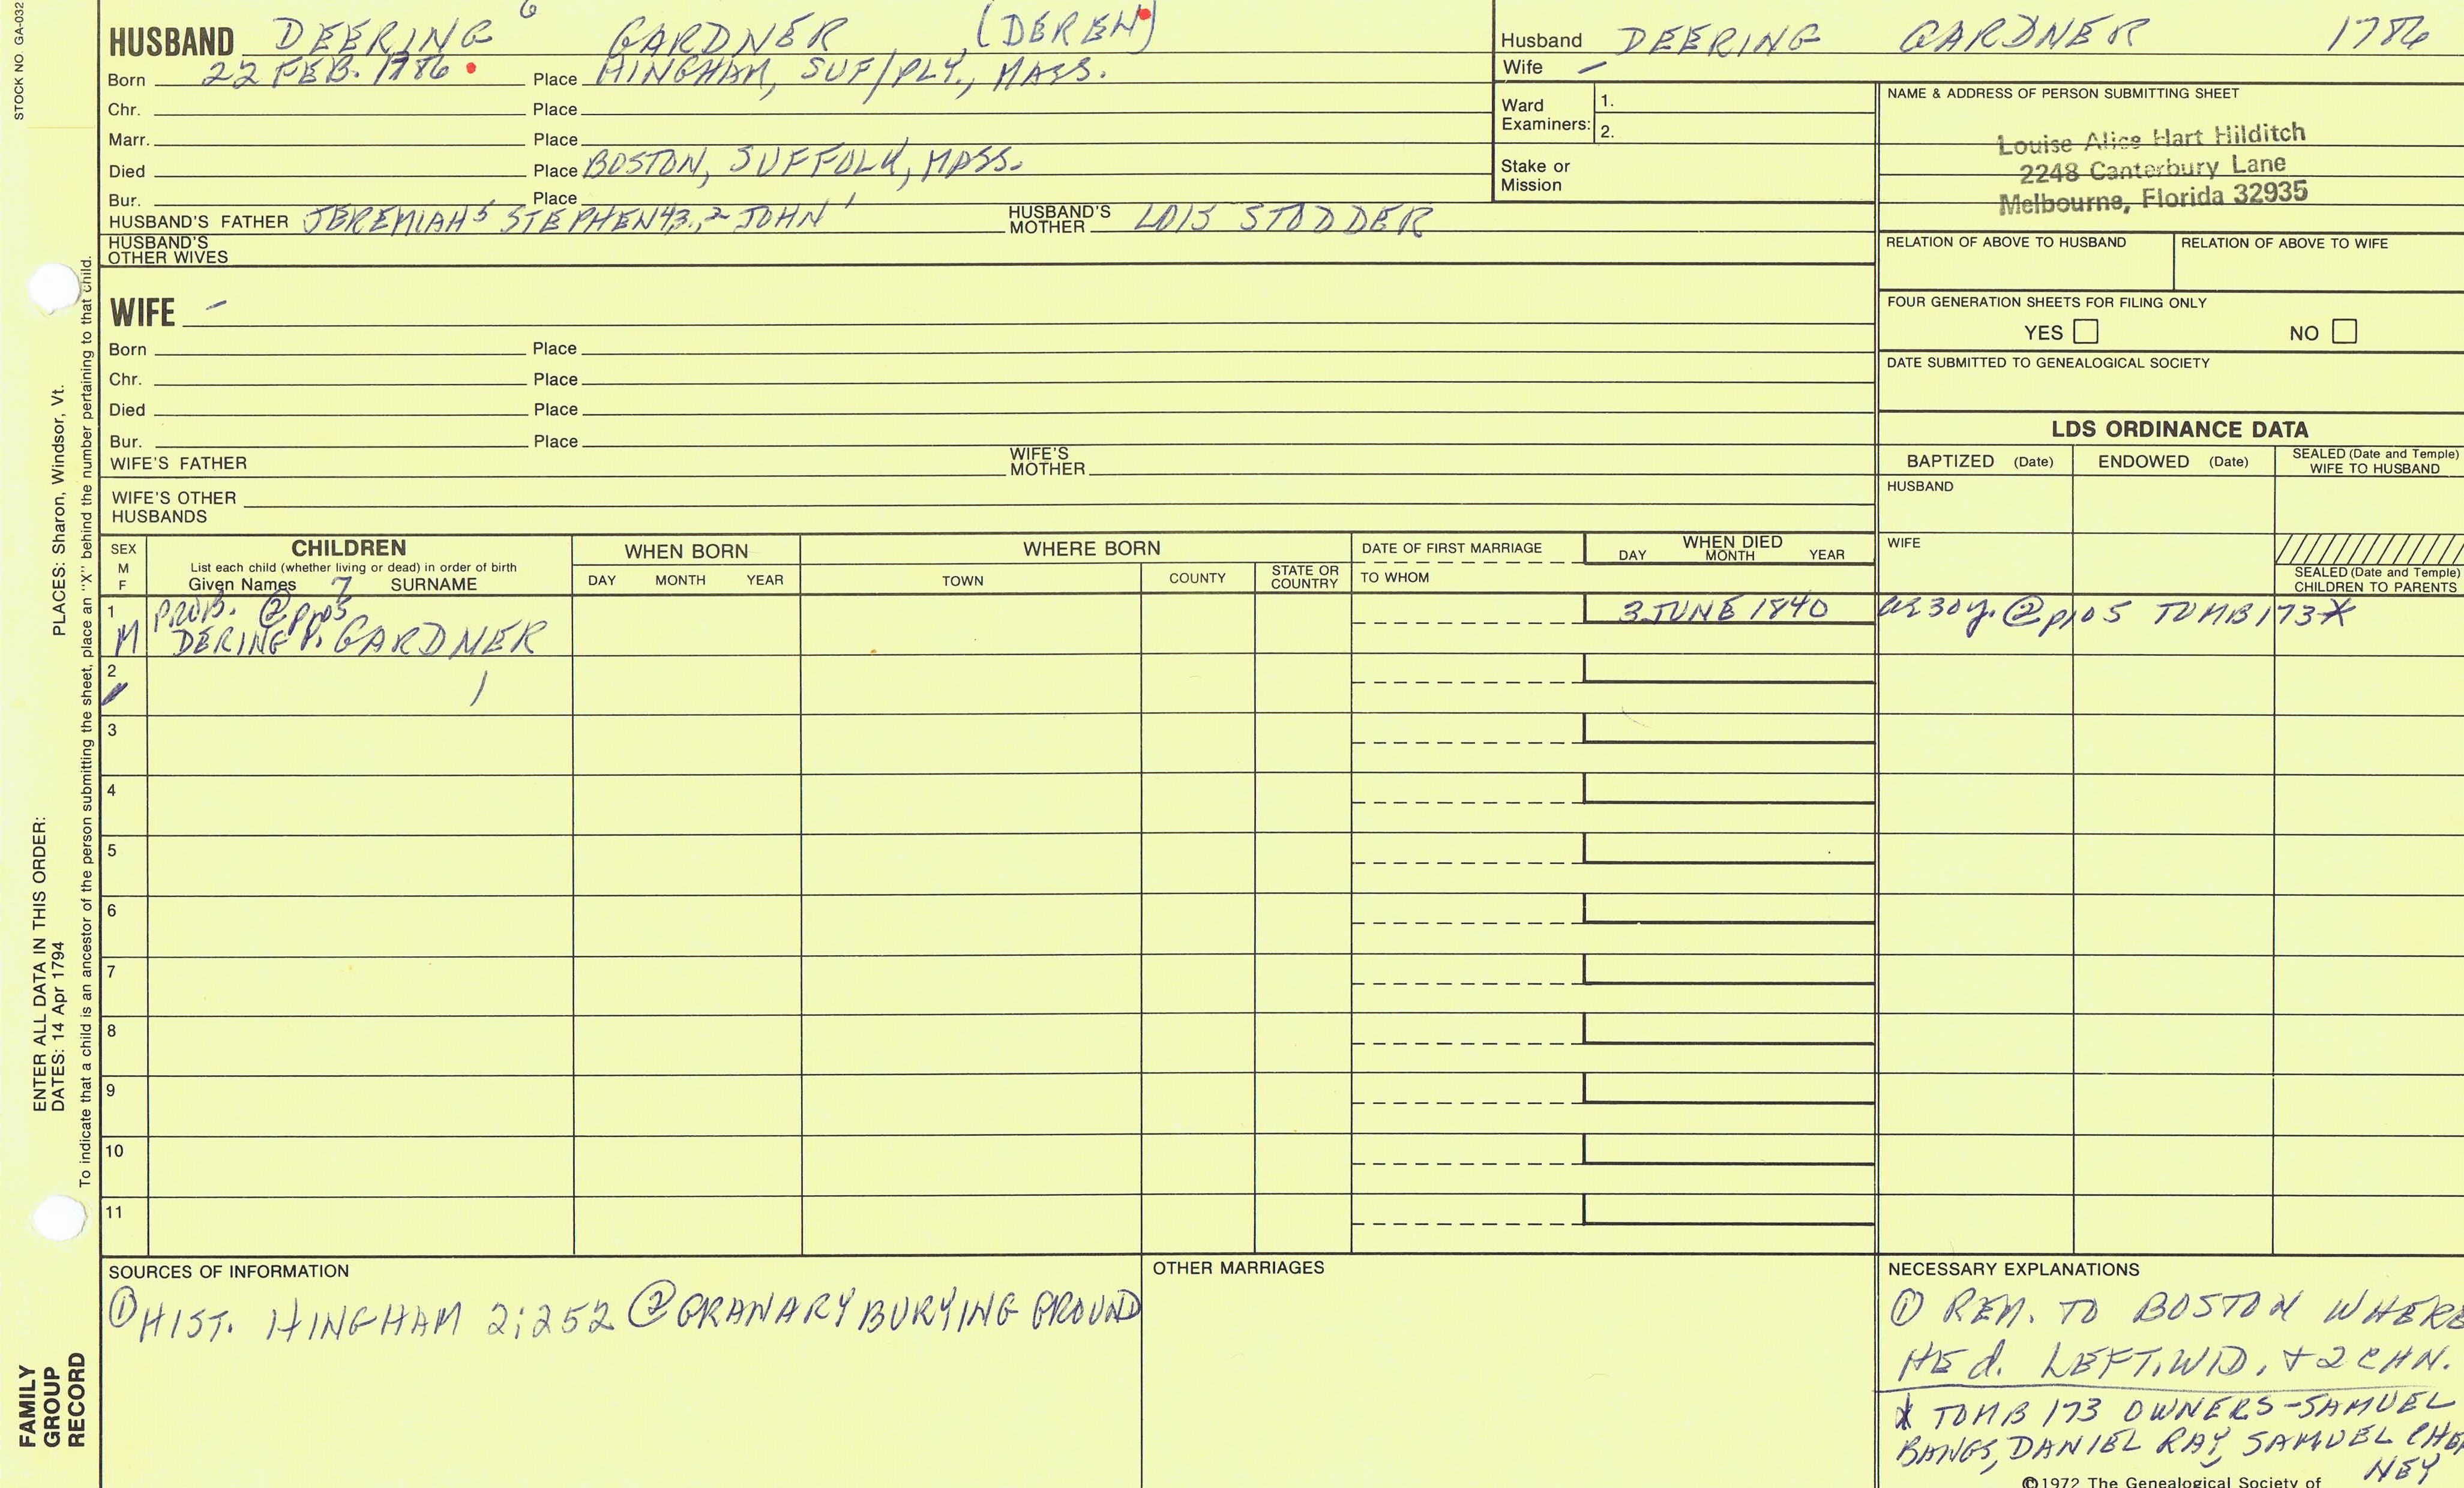 STOCK NO. GA-032
HUSBAND DEERING 6 GARDNER (DEREN)
Born 22 FEB. 1786 Place HINGHAM, SUF/PLY., MASS.
Chr. Place
Marr. Place
Died Place BOSTON, SUFFOLK, MASS.
Bur. Place
HUSBAND'S FATHER JEREMIAH 5 STEPHEN 4,3,2 JOHN 1 HUSBAND'S MOTHER LOIS STODDER
HUSBAND'S OTHER WIVES
Husband DEERING GARDNER 1786
Wife –
Ward Examiners: 1.
2.
Stake or Mission
NAME & ADDRESS OF PERSON SUBMITTING SHEET
Louise Alice Hart Hilditch
2248 Canterbury Lane
Melbourne, Florida 32935
RELATION OF ABOVE TO HUSBAND RELATION OF ABOVE TO WIFE
FOUR GENERATION SHEETS FOR FILING ONLY
YES NO
DATE SUBMITTED TO GENEALOGICAL SOCIETY
WIFE –
Born Place
Chr. Place
Died Place
Bur. Place
WIFE'S FATHER WIFE'S MOTHER
WIFE'S OTHER HUSBANDS
LDS ORDINANCE DATA
BAPTIZED (Date) ENDOWED (Date) SEALED (Date and Temple) WIFE TO HUSBAND
HUSBAND
WIFE
SEALED (Date and Temple) CHILDREN TO PARENTS
SEX M F
CHILDREN
List each child (whether living or dead) in order of birth
Given Names 7 SURNAME
WHEN BORN
DAY MONTH YEAR
WHERE BORN
TOWN COUNTY STATE OR COUNTRY
DATE OF FIRST MARRIAGE
TO WHOM
WHEN DIED
DAY MONTH YEAR
1 PROB. @ p105 3 JUNE 1840 ae 30y. ② p105 TOMB 173*
M DERING P. GARDNER
2
3
4
5
6
7
8
9
10
11
SOURCES OF INFORMATION
① HIST. HINGHAM 2:252 ② GRANARY BURYING GROUND
OTHER MARRIAGES
NECESSARY EXPLANATIONS
① REM. TO BOSTON WHERE
HE d. LEFT WID. + 2 CHN.
* TOMB 173 OWNERS-SAMUEL
BANGS, DANIEL RAY, SAMUEL CHE
NEY
©1972 The Genealogical Society of
PLACES: Sharon, Windsor, Vt.
ENTER ALL DATA IN THIS ORDER:
DATES: 14 Apr 1794
To indicate that a child is an ancestor of the person submitting the sheet, place an "X" behind the number pertaining to that child.
FAMILY
GROUP
RECORD